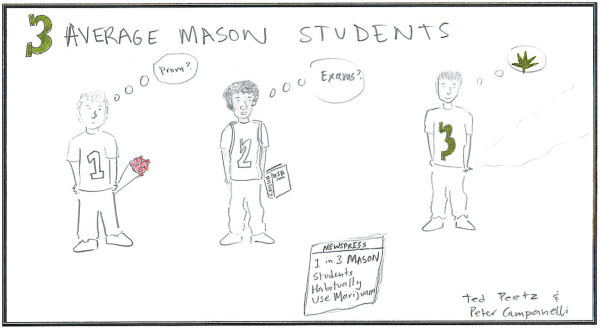 3 AVERAGE MASON STUDENTS
Prom?
Exams?
1
2
3
USA
NEWSPRESS
1 in 3 MASON
Students
Habitually
Use Marijuana
Ted Peetz &
Peter Campanelli